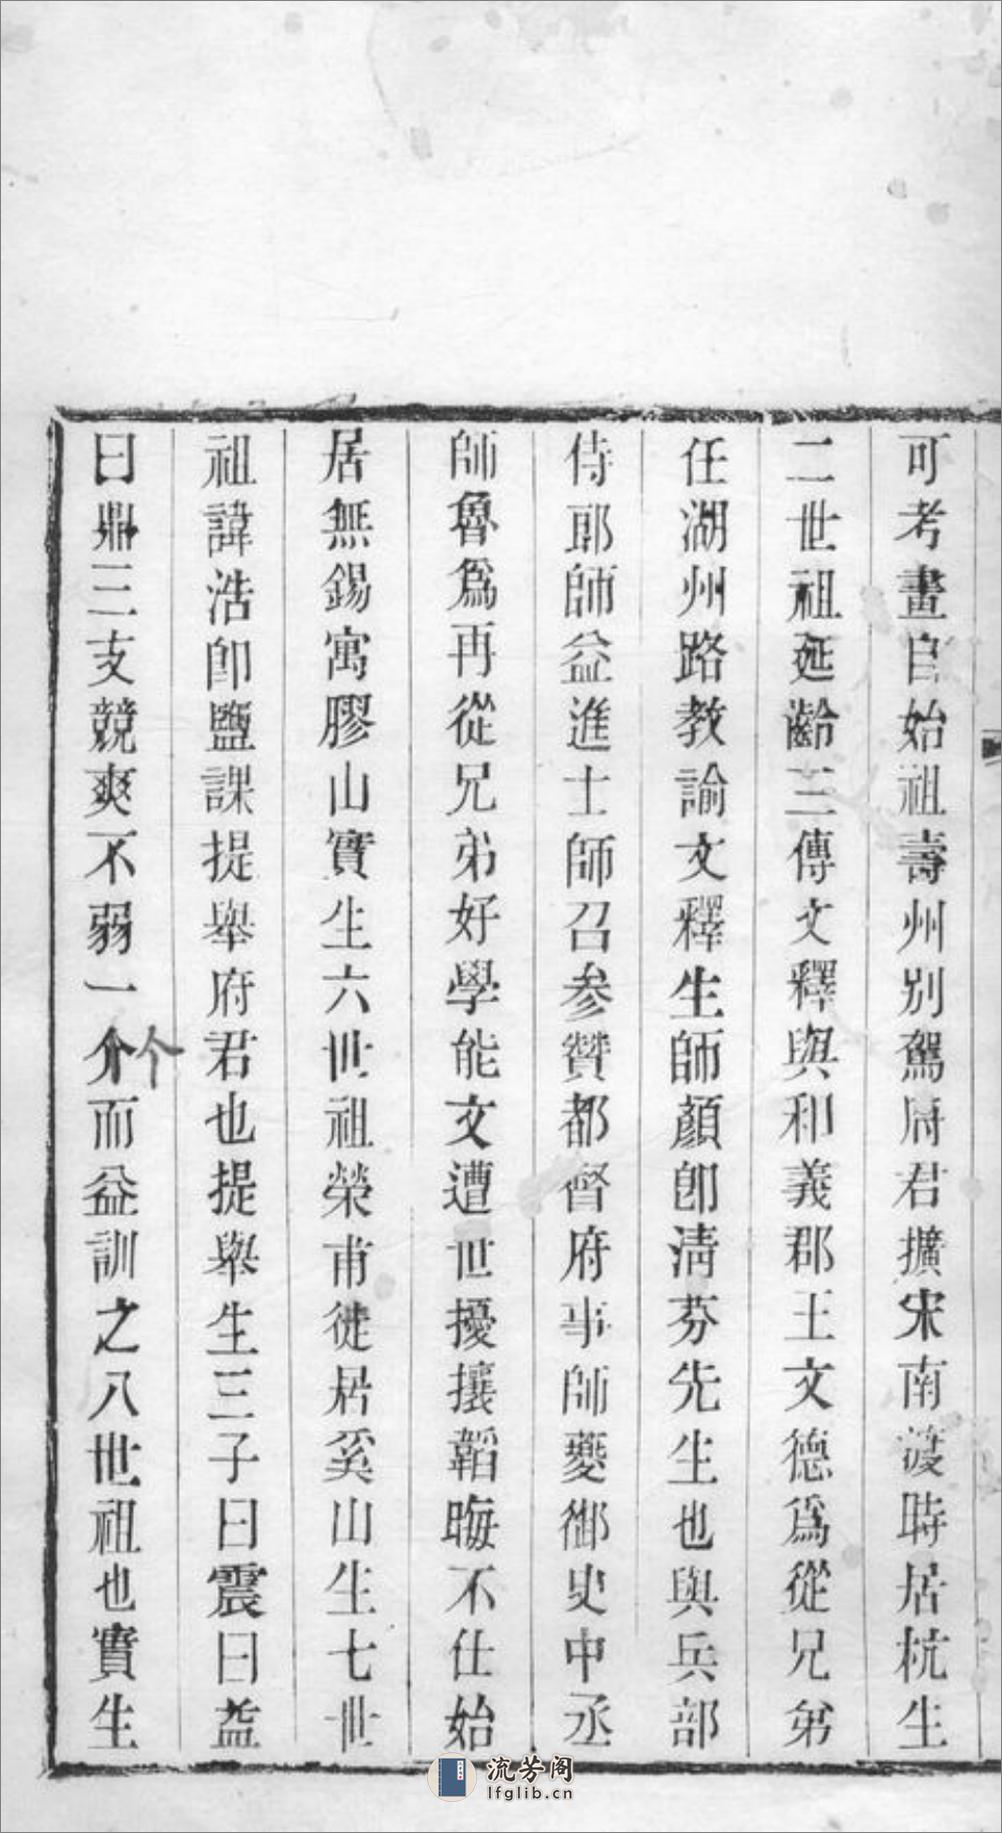 可考畫自始祖壽州別駕府君擴宋南渡時居杭生
二世祖延齡三傳文釋與和義郡王文德爲從兄弟
任湖州路教諭文釋生師顏卽淸芬先生也與兵部
侍郎師益進士師召參贊都督府事師夔御史中丞
師魯爲再從兄弟好學能文遭世擾攘韜晦不仕始
居無錫寓膠山實生六世祖榮甫徙居奚山生七世
祖諱浩卽鹽課提舉府君也提舉生三子曰震曰益
曰鼎三支競爽不弱一介而益訓之八世祖也實生
个
流芳阁
lfglib.cn